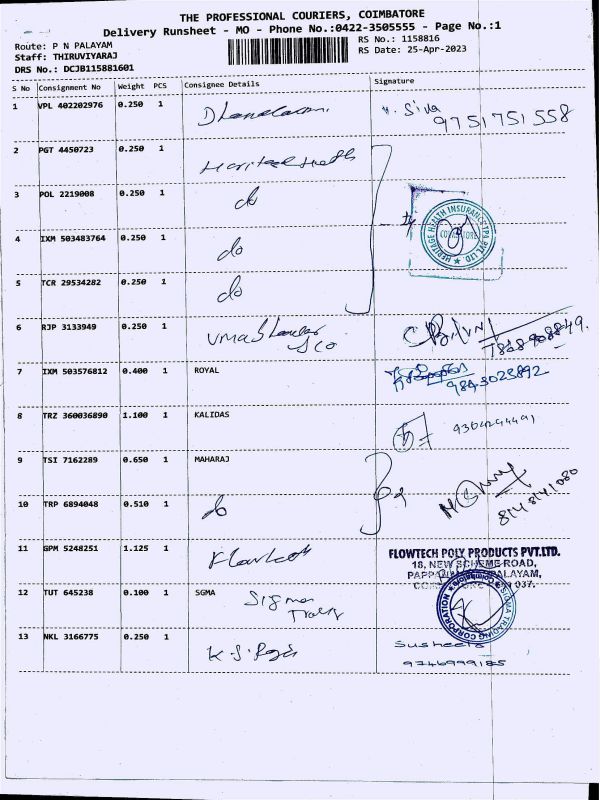 THE PROFESSIONAL COURIERS, COIMBATORE
Delivery Runsheet - MO - Phone No.:0422-3505555 - Page No.:1
Route: P N PALAYAM
RS No.: 1158816
Staff: THIRUVIYARAJ
RS Date: 25-Apr-2023
DRS No.: DCJB115881601
S No Consignment No Weight PCS Consignee Details Signature
1 VPL 402202976 0.250 1 V. Siva
9751751558
2 PGT 4450723 0.250 1
3 POL 2219008 0.250 1 do
HERITAGE HEALTH INSURANCE TPA PVT. LTD
4 IXM 503483764 0.250 1 do
5 TCR 29534282 0.250 1 do
6 RJP 3133949 0.250 1 Uma Shankar
& Co
7 IXM 503576812 0.400 1 ROYAL
9843023892
8 TRZ 360036890 1.100 1 KALIDAS
9 TSI 7162289 0.650 1 MAHARAJ
8148141080
10 TRP 6894048 0.510 1 do
11 GPM 5248251 1.125 1 Flowtech
FLOWTECH POLY PRODUCTS PVT.LTD.
18, NEW SCHEME ROAD,
037.
12 TUT 645238 0.100 1 SGMA Sigma
SIGMA TRADING CORPORATION
Coimbatore
13 NKL 3166775 0.250 1 K.S.
Susheela
9746999185